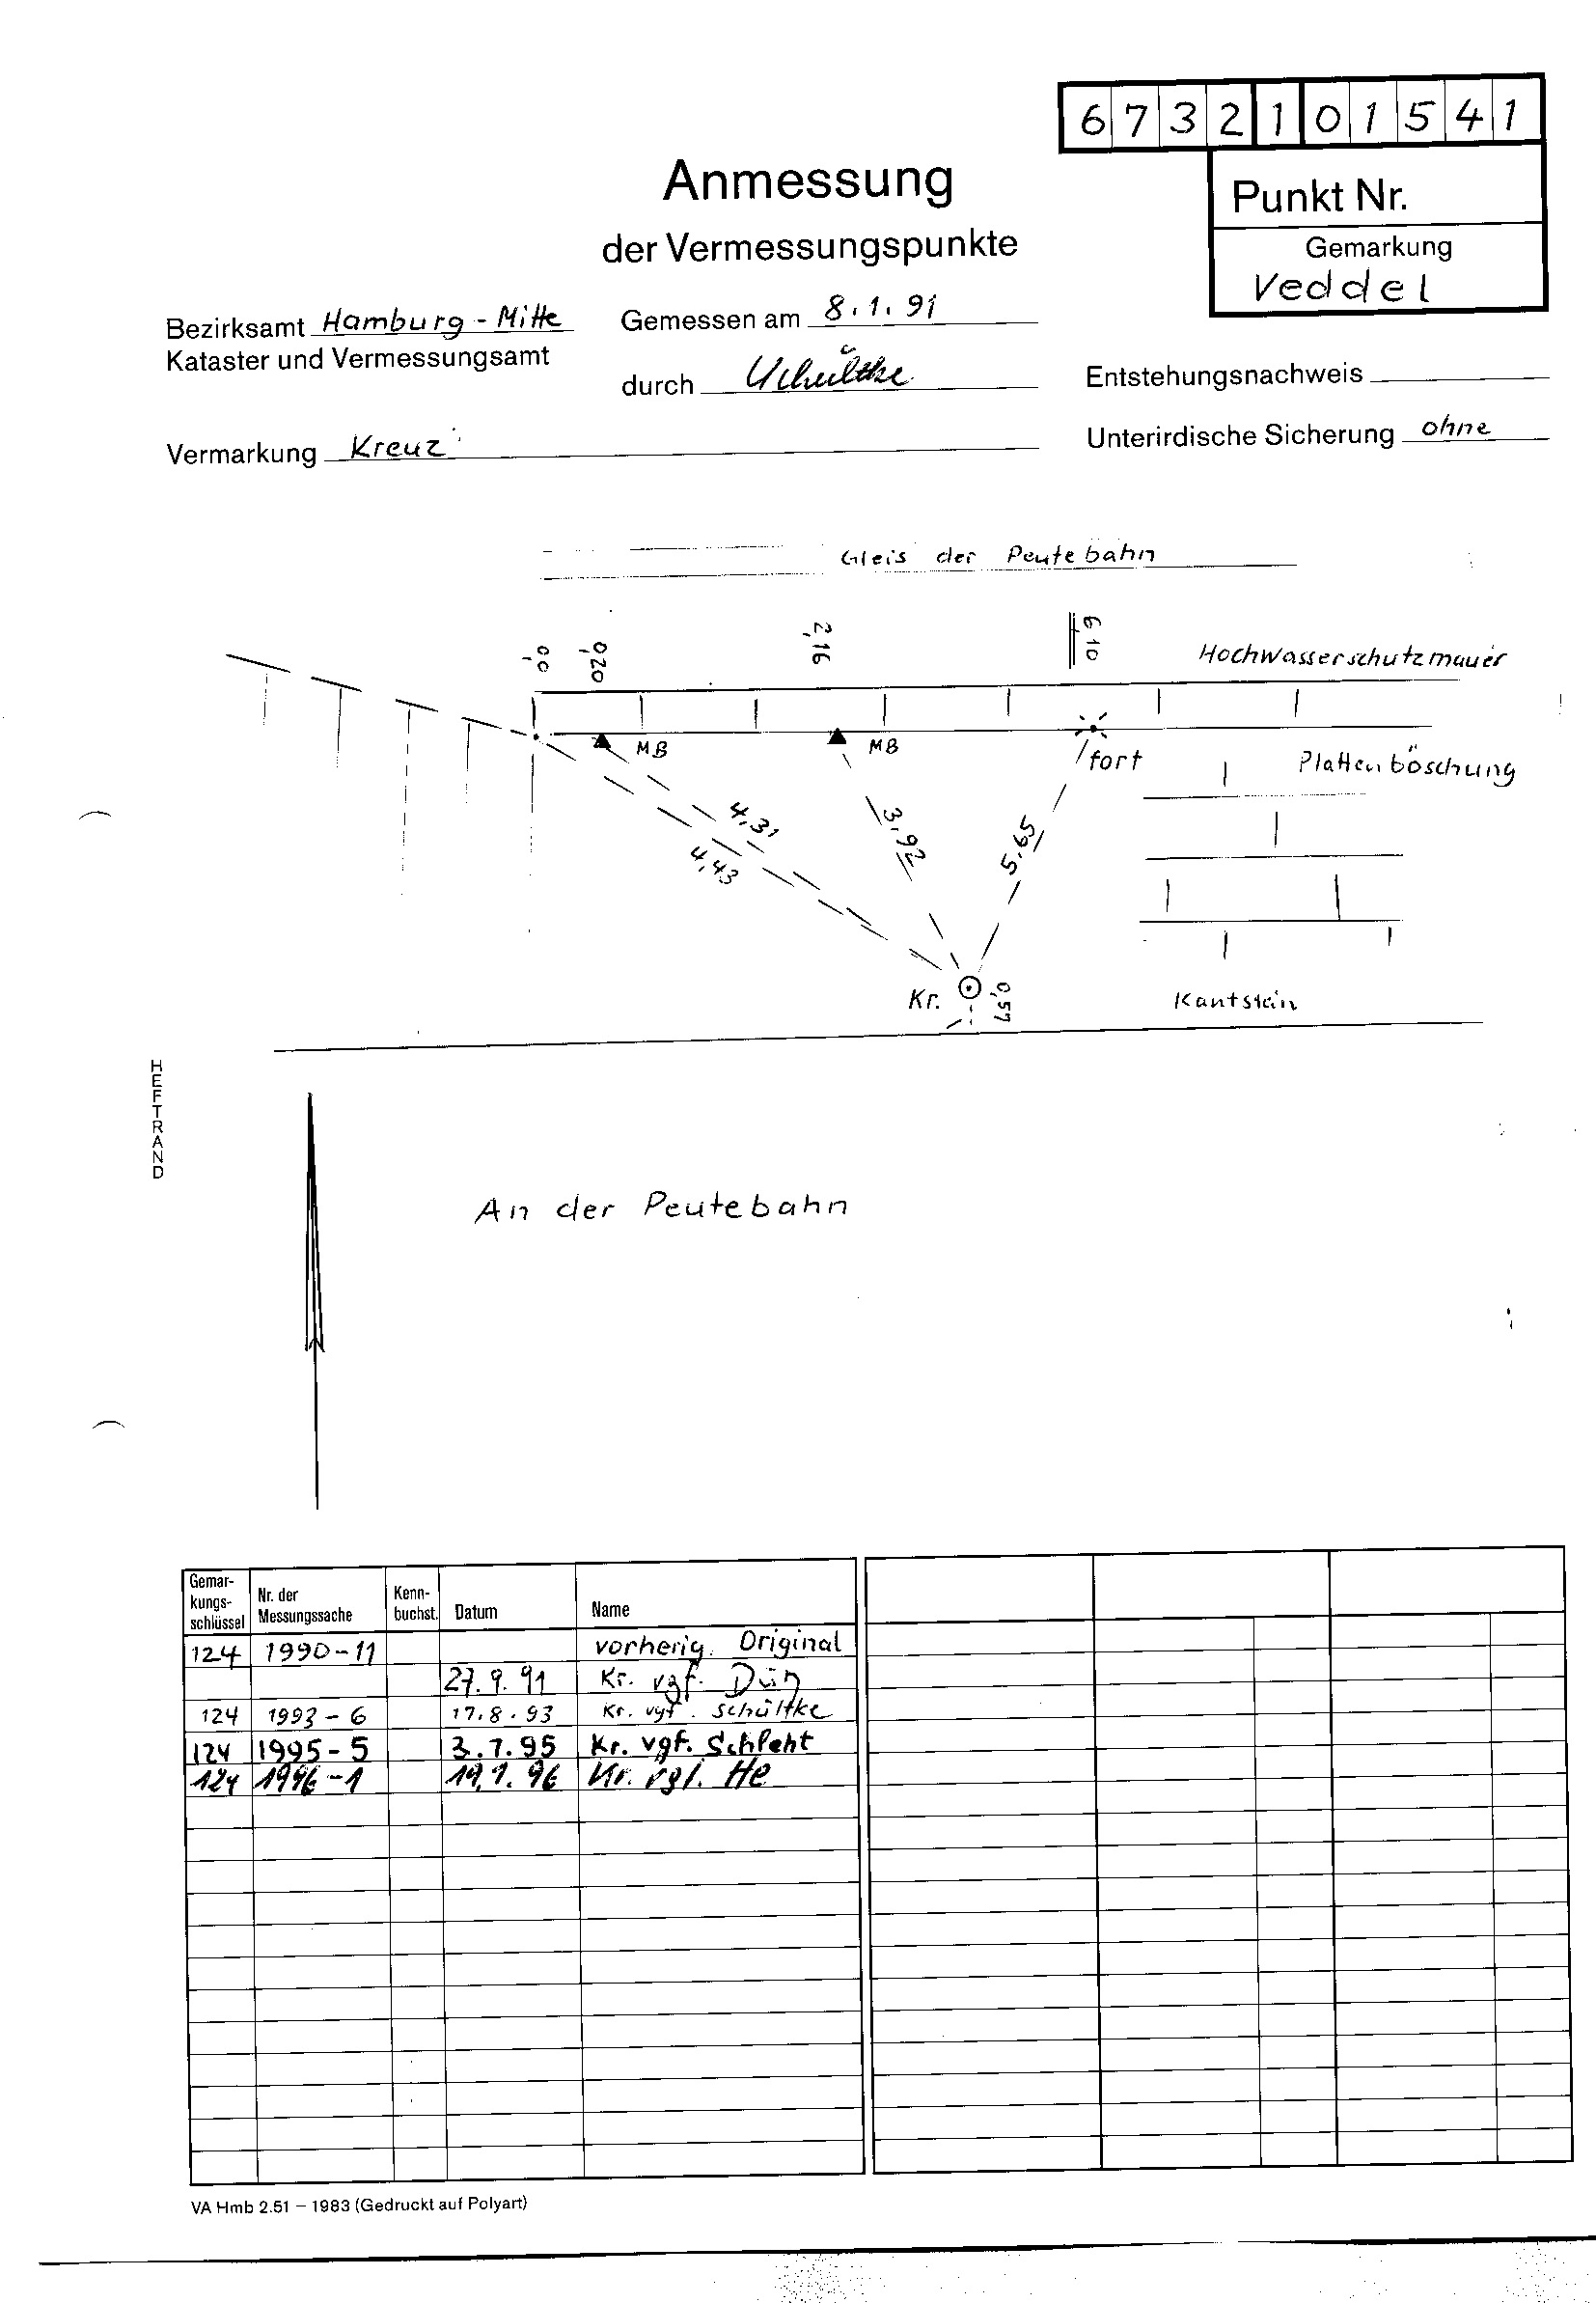 6732101541
Anmessung
der Vermessungspunkte
Punkt Nr.
Gemarkung
Veddel
Bezirksamt Hamburg-Mitte
Kataster und Vermessungsamt
Gemessen am 8.1.91
durch Schültke
Entstehungsnachweis
Unterirdische Sicherung ohne
Vermarkung Kreuz
Gleis der Peutebahn
0,0
0,20
2,16
6,10
Hochwasserschutzmauer
MB
MB
fort
Plattenböschung
4,31
4,43
3,92
5,65
Kr.
0,57
Kantstein
HEFTRAND
An der Peutebahn
Gemar-
kungs-
schlüssel
Nr. der
Messungssache
Kenn-
buchst.
Datum
Name
124 1990-11 vorherig. Original
27.9.91 Kr. vgf.
124 1993-6 17.8.93 Kr. vgf. Schültke
124 1995-5 3.7.95 Kr. vgf. Schleht
124 1996-1 19.1.96 Kr. vgl. He
VA Hmb 2.51 – 1983 (Gedruckt auf Polyart)